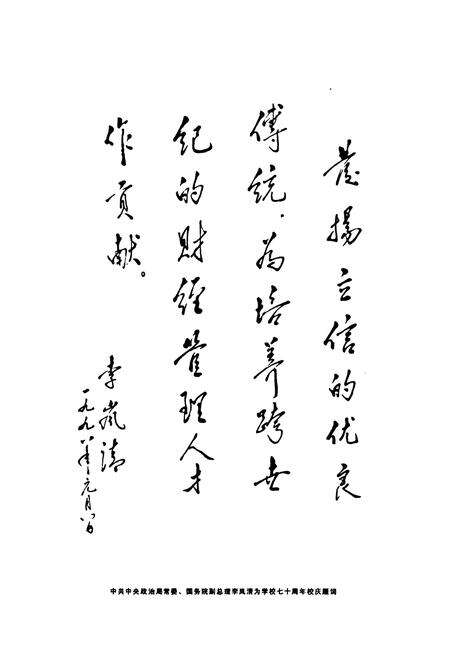 发揚立信的优良
傳統,为培养跨世
纪的财经管理人才
作贡献。
李岚清
一九九八年元月八日
中共中央政治局常委、国务院副总理李岚清为学校七十周年校庆题词